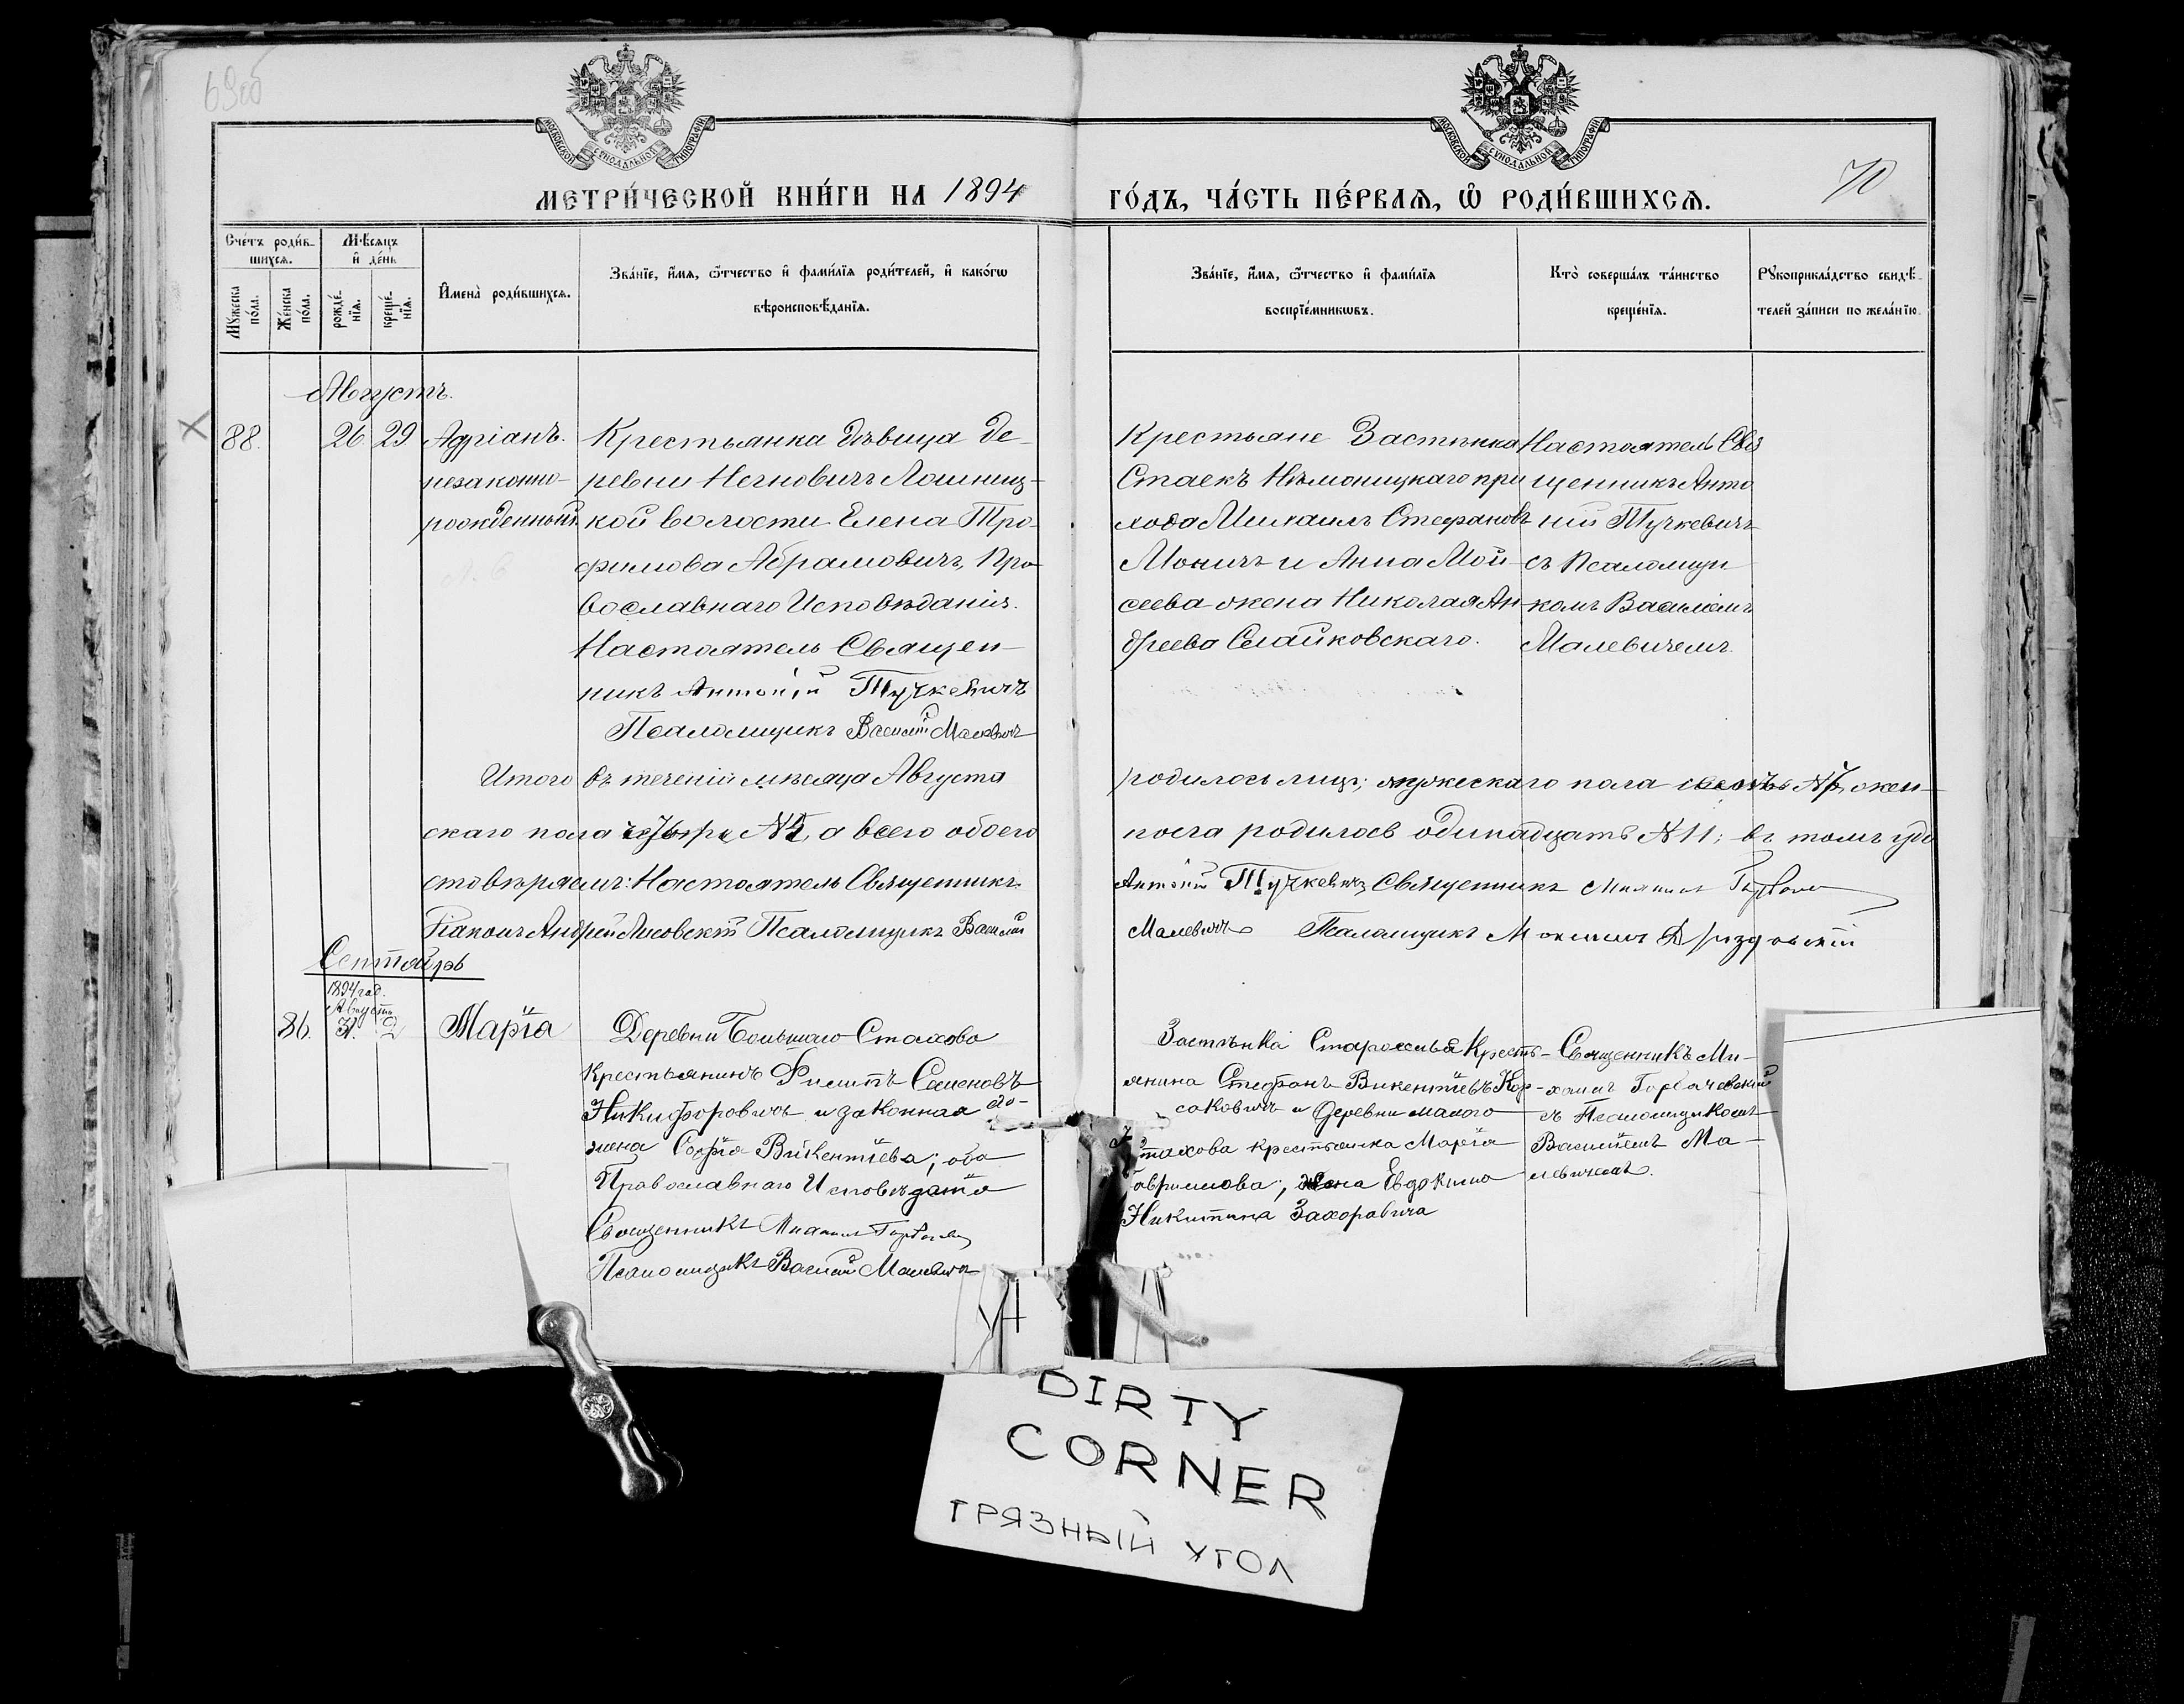 69об
МОСКОВСКОЙ СѴНОДАЛЬНОЙ ТИПОГРАФІИ
МОСКОВСКОЙ СѴНОДАЛЬНОЙ ТИПОГРАФІИ
МЕТРИ́ЧЕСКОЙ КНИ́ГИ НА 1894
ГО́ДЪ, ЧА́СТЬ ПЕ́РВАѦ, Ѽ РОДИ́ВШИХСѦ.
70
Сче́тъ роди́в-
шихсѧ.
Мѣ́сѧцъ
и҆ де́нь
Мꙋ́жеска по́ла.
Же́нска по́ла.
рожде́-нїѧ.
креще́-нїѧ.
И҆мена̀ роди́вшихсѧ.
Зва́нїе, и҆́мѧ, ѻ҆́тчество и҆ фами́лїѧ роди́телей, и҆ како́гѡ
вѣроисповѣ́данїѧ.
Зва́нїе, и҆́мѧ, ѻ҆́тчество и҆ фами́лїѧ
воспрїе́мникѡвъ.
Кто̀ соверша́лъ та́инство
креще́нїѧ.
Рꙋкоприкла́дство свидѣ́-
телей за́писи по жела́нїю.
Августъ.
88. 26 29
Адріанъ.
незаконно-
рожденный.
Крестьянка дѣвица де-
ревни Негновичъ Лошниц-
кой волости Елена Тро-
фимова Абрамовичъ, Пра-
вославнаго Исповѣданія.
Настоятель Священ-
никъ Антоній Тучкевичъ
Псаломщикъ Василій Малевичъ
Крестьяне Застѣнка
Стаекъ Нѣмоницкаго при
хода Михаилъ Стефановъ
Моничъ и Анна Мой-
сеева жена Николая Ан-
дреева Слайковскаго.
Настоятель Свя
щенникъ Анто
ній Тучкевичъ
съ Псаломщи
комъ Василіемъ
Малевичемъ.
Итого въ теченіи мѣсяца Августа
родилось лицъ; мужескаго пола № 7, жен-
скаго пола четыри № 4, а всего обоего
пола родилось одинадцать № 11; въ томъ удо
стовѣряемъ: Настоятель Священникъ
Антоній Тучкевичъ Священникъ Михаилъ
Діаконъ Андрей Лисовскій Псаломщикъ Василій
Малевичъ Псаломщикъ
Сентябрь
1894 год.
Августа
86. 31. 2
Марія
Деревни Большаго Стахова
Крестьянинъ Филиппъ Семеновъ
Никифоровичъ и законная его
жена Софія Викентіева; оба
Православнаго Исповѣданія
Священникъ Михаилъ
Псаломщикъ Василій Малевичъ
Застѣнка Староселья Кресть-
янина Стефанъ Викентіевъ Кор-
саковичъ и Деревни малаго
Стахова крестьянка Марія
жена Евдокима
Никитина Захоравича
Священникъ Ми-
хаилъ Горбачевскій
съ Псаломщикомъ
Василіемъ Ма-
левичемъ.
DIRTY
CORNER
ГРЯЗНЫЙ УГОЛ